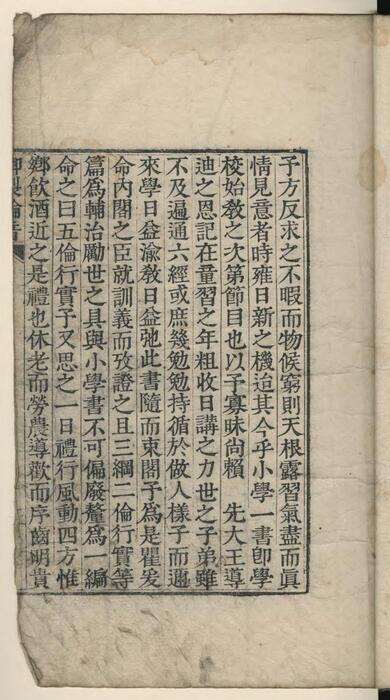 予方反求之不暇而物候窮則天根露習氣盡而眞
情見意者時雍日新之機迨其今乎小學一書卽學
校始敎之次第節目也以予寡昧尙賴　先大王導
迪之恩記在童習之年粗收日講之力世之子弟雖
不及遍通六經或庶幾勉勉持循於做人樣子而邇
來學日益渝敎日益弛此書隨而束閣予爲是瞿爰
命內閣之臣就訓義而攷證之且三綱二倫行實等
篇爲輔治勵世之具與小學書不可偏廢釐爲一編
命之曰五倫行實予又思之一日禮行風動四方惟
鄕飮酒近之是禮也休老而勞農導歡而序齒明貴
御製綸音